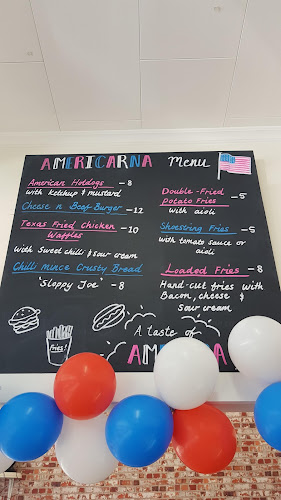 AMERICARNA Menu
American Hotdogs - 8
with Ketchup & mustard
Cheese n Beef-Burger - 12
Texas Fried Chicken - 10
Waffles
with Sweet chilli & sour cream
Chilli mince Crusty Bread
'Sloppy Joe' - 8
Double-Fried - 5
Potato Fries
with aioli
Shoestring Fries - 5
with tomato sauce or
aioli
Loaded Fries - 8
Hand-cut fries with
Bacon, cheese &
sour cream
Fries!
A taste of